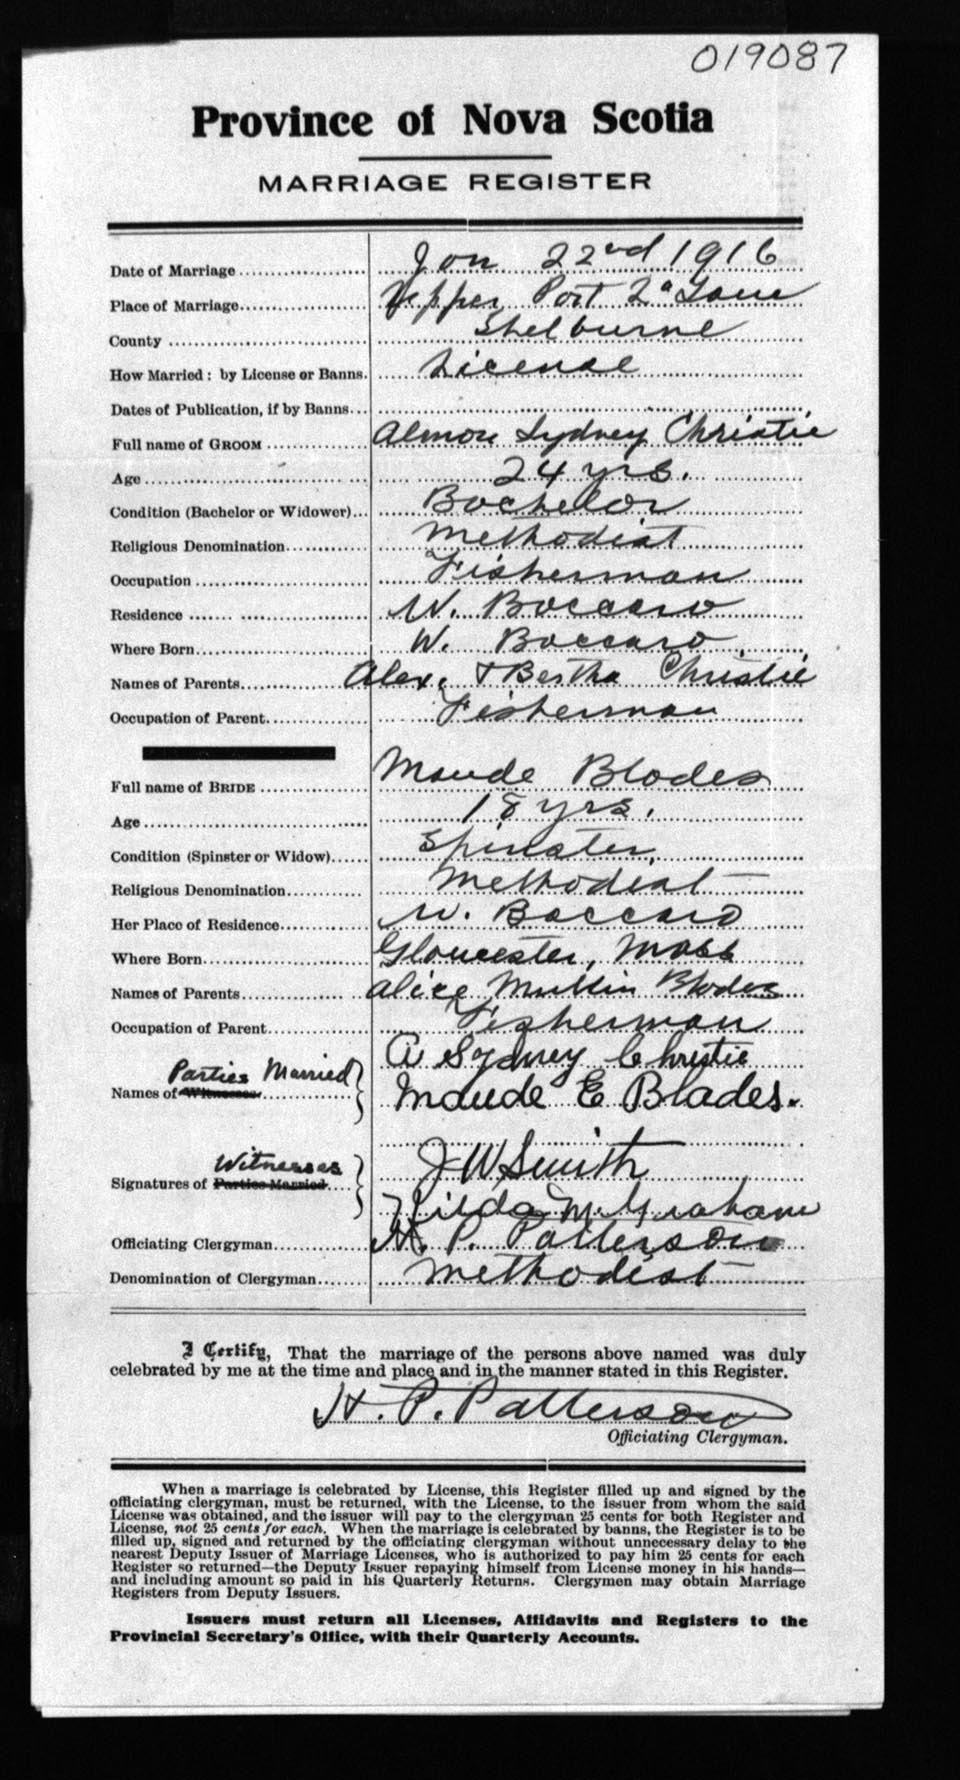 019087
Province of Nova Scotia
MARRIAGE REGISTER
Date of Marriage Jan 22nd 1916
Place of Marriage Upper Port La Tour
County Shelburne
How Married: by License or Banns. License
Dates of Publication, if by Banns
Full name of GROOM Almon Sydney Christie
Age 24 yrs.
Condition (Bachelor or Widower) Bachelor
Religious Denomination Methodist
Occupation Fisherman
Residence W. Baccaro
Where Born W. Baccaro
Names of Parents Alex. & Bertha Christie
Occupation of Parent Fisherman
Full name of BRIDE Maude Blades
Age 18 yrs.
Condition (Spinster or Widow) Spinster.
Religious Denomination Methodist
Her Place of Residence W. Baccaro
Where Born Gloucester, Mass
Names of Parents Alice Mullin Blades
Occupation of Parent Fisherman
A Sydney Christie
Parties Married
Names of Witnesses Maude E Blades.
J W Smith
Witnesses
Signatures of Parties Married
Hilda M. Graham
Officiating Clergyman H. P. Patterson
Denomination of Clergyman Methodist
I Certify, That the marriage of the persons above named was duly
celebrated by me at the time and place and in the manner stated in this Register.
H. P. Patterson
Officiating Clergyman.
When a marriage is celebrated by License, this Register filled up and signed by the
officiating clergyman, must be returned, with the License, to the issuer from whom the said
License was obtained, and the issuer will pay to the clergyman 25 cents for both Register and
License, not 25 cents for each. When the marriage is celebrated by banns, the Register is to be
filled up, signed and returned by the officiating clergyman without unnecessary delay to the
nearest Deputy Issuer of Marriage Licenses, who is authorized to pay him 25 cents for each
Register so returned—the Deputy Issuer repaying himself from License money in his hands—
and including amount so paid in his Quarterly Returns. Clergymen may obtain Marriage
Registers from Deputy Issuers.
Issuers must return all Licenses, Affidavits and Registers to the
Provincial Secretary's Office, with their Quarterly Accounts.